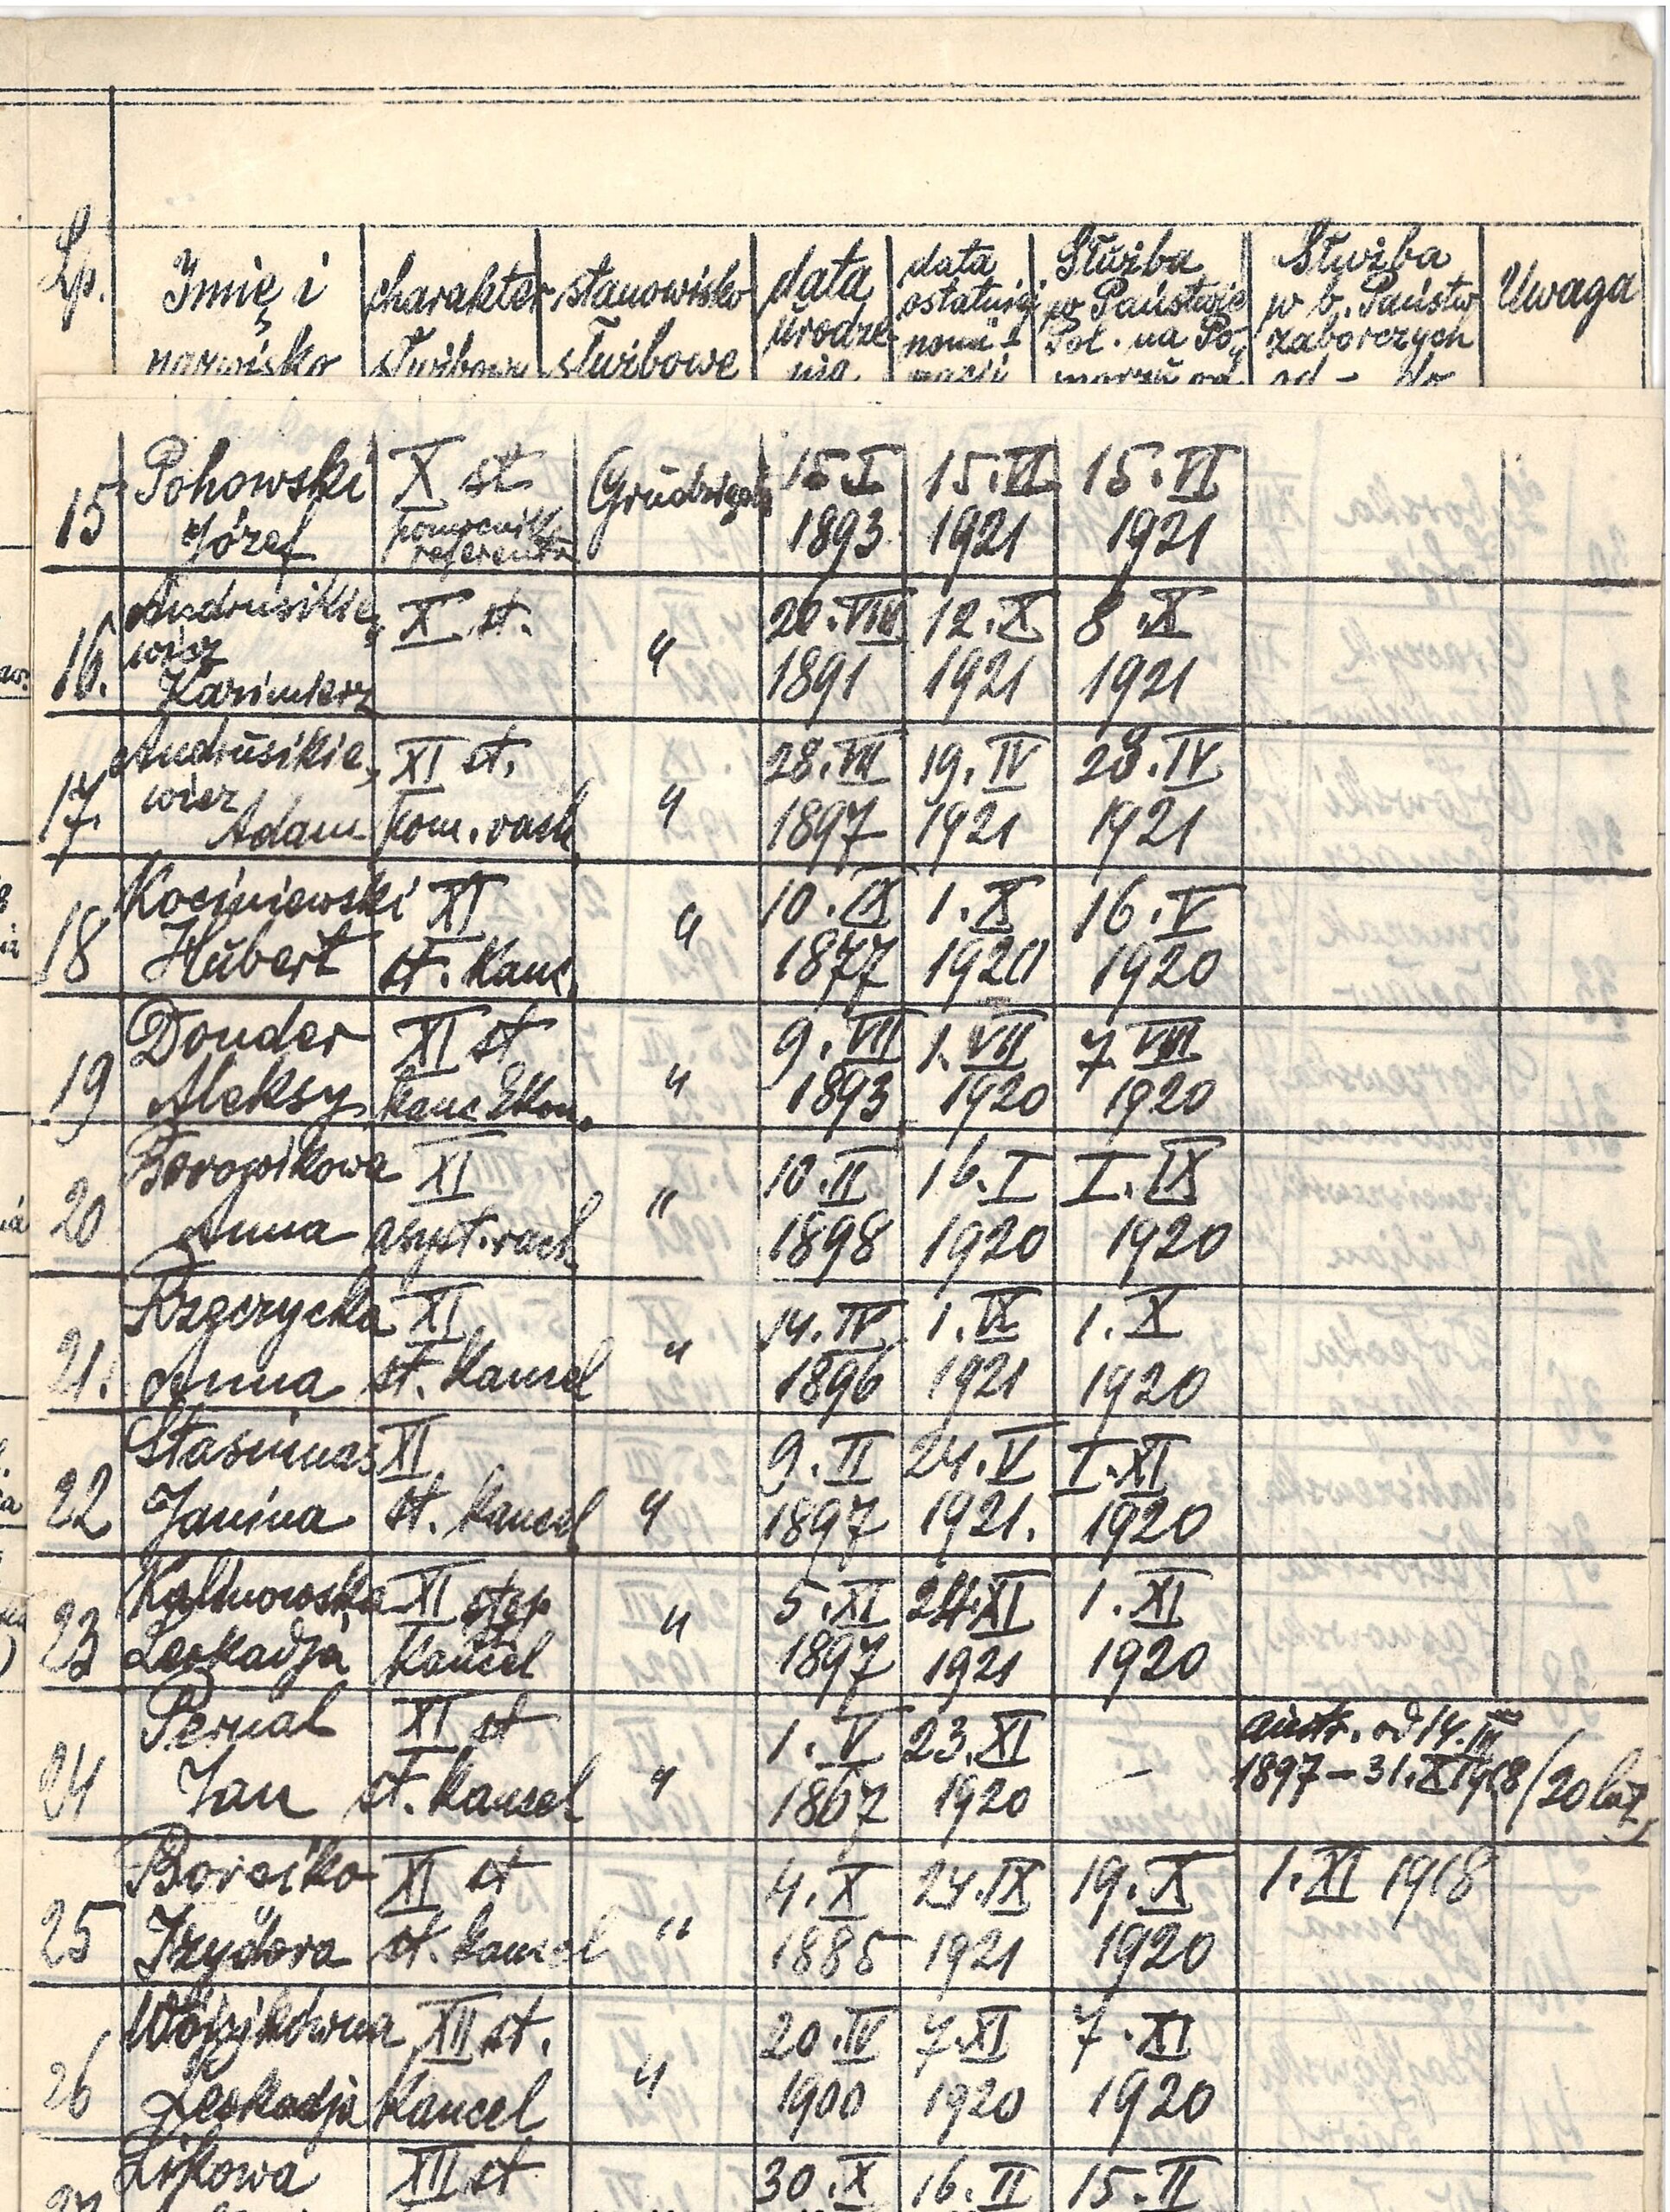 Lp. Imię i charakter stanowisko data data Służba Służba Uwaga
nazwisko służbowy służbowe urodze- ostatniej w Państwie w b. Państw
nia nomi- Pol. na Po- zaborczych
nacji morzu od od - do
15 Pohowski X st Grudziądz 15.I 15.VI 15.VI
Józef pomocnik 1893 1921 1921
referenta
16. Andrusikie- X st. " 20.VIII 12.X 8.X
wicz 1891 1921 1921
Kazimierz
17. Andrusikie- XI st. " 28.VII 19.IV 28.IV
wicz 1897 1921 1921
Adam kom. rach
18 Kociniewski XI " 10.IX 1.X 16.V
Hubert st. Kanc. 1877 1920 1920
19 Donder XI st " 9.VII 1.VII 7 VIII
Aleksy kanc Ekon. 1893 1920 1920
20 Borowikowa XI " 10.II 16.I I.IX
Anna asyst. rach. 1898 1920 1920
21. Rzeczycka XI " 14.IV 1.IX 1.X
Anna st. Kancel 1896 1921 1920
22 XI " 9.II 24.V I.XI
Janina st. kancel 1897 1921. 1920
23 Kalinowska XI step " 5.XI 24.XI 1.XI
Leokadja Kancel 1897 1921 1920
24 Pernal XI st " 1.V 23.XI – austr. od 14.III
Jan st. Kancel 1867 1920 1897 – 31.X 1918 (20 lat)
25 Borejko XI st " 4.X 24.IX 19.X 1.XI 1918
Izydora st. kancel 1885 1921 1920
26 Wójcikówna XII st. " 20.IV 7.XI 7.XI
Leokadja Kancel 1900 1920 1920
27 Likowa XII st 30.X 16.II 15.II